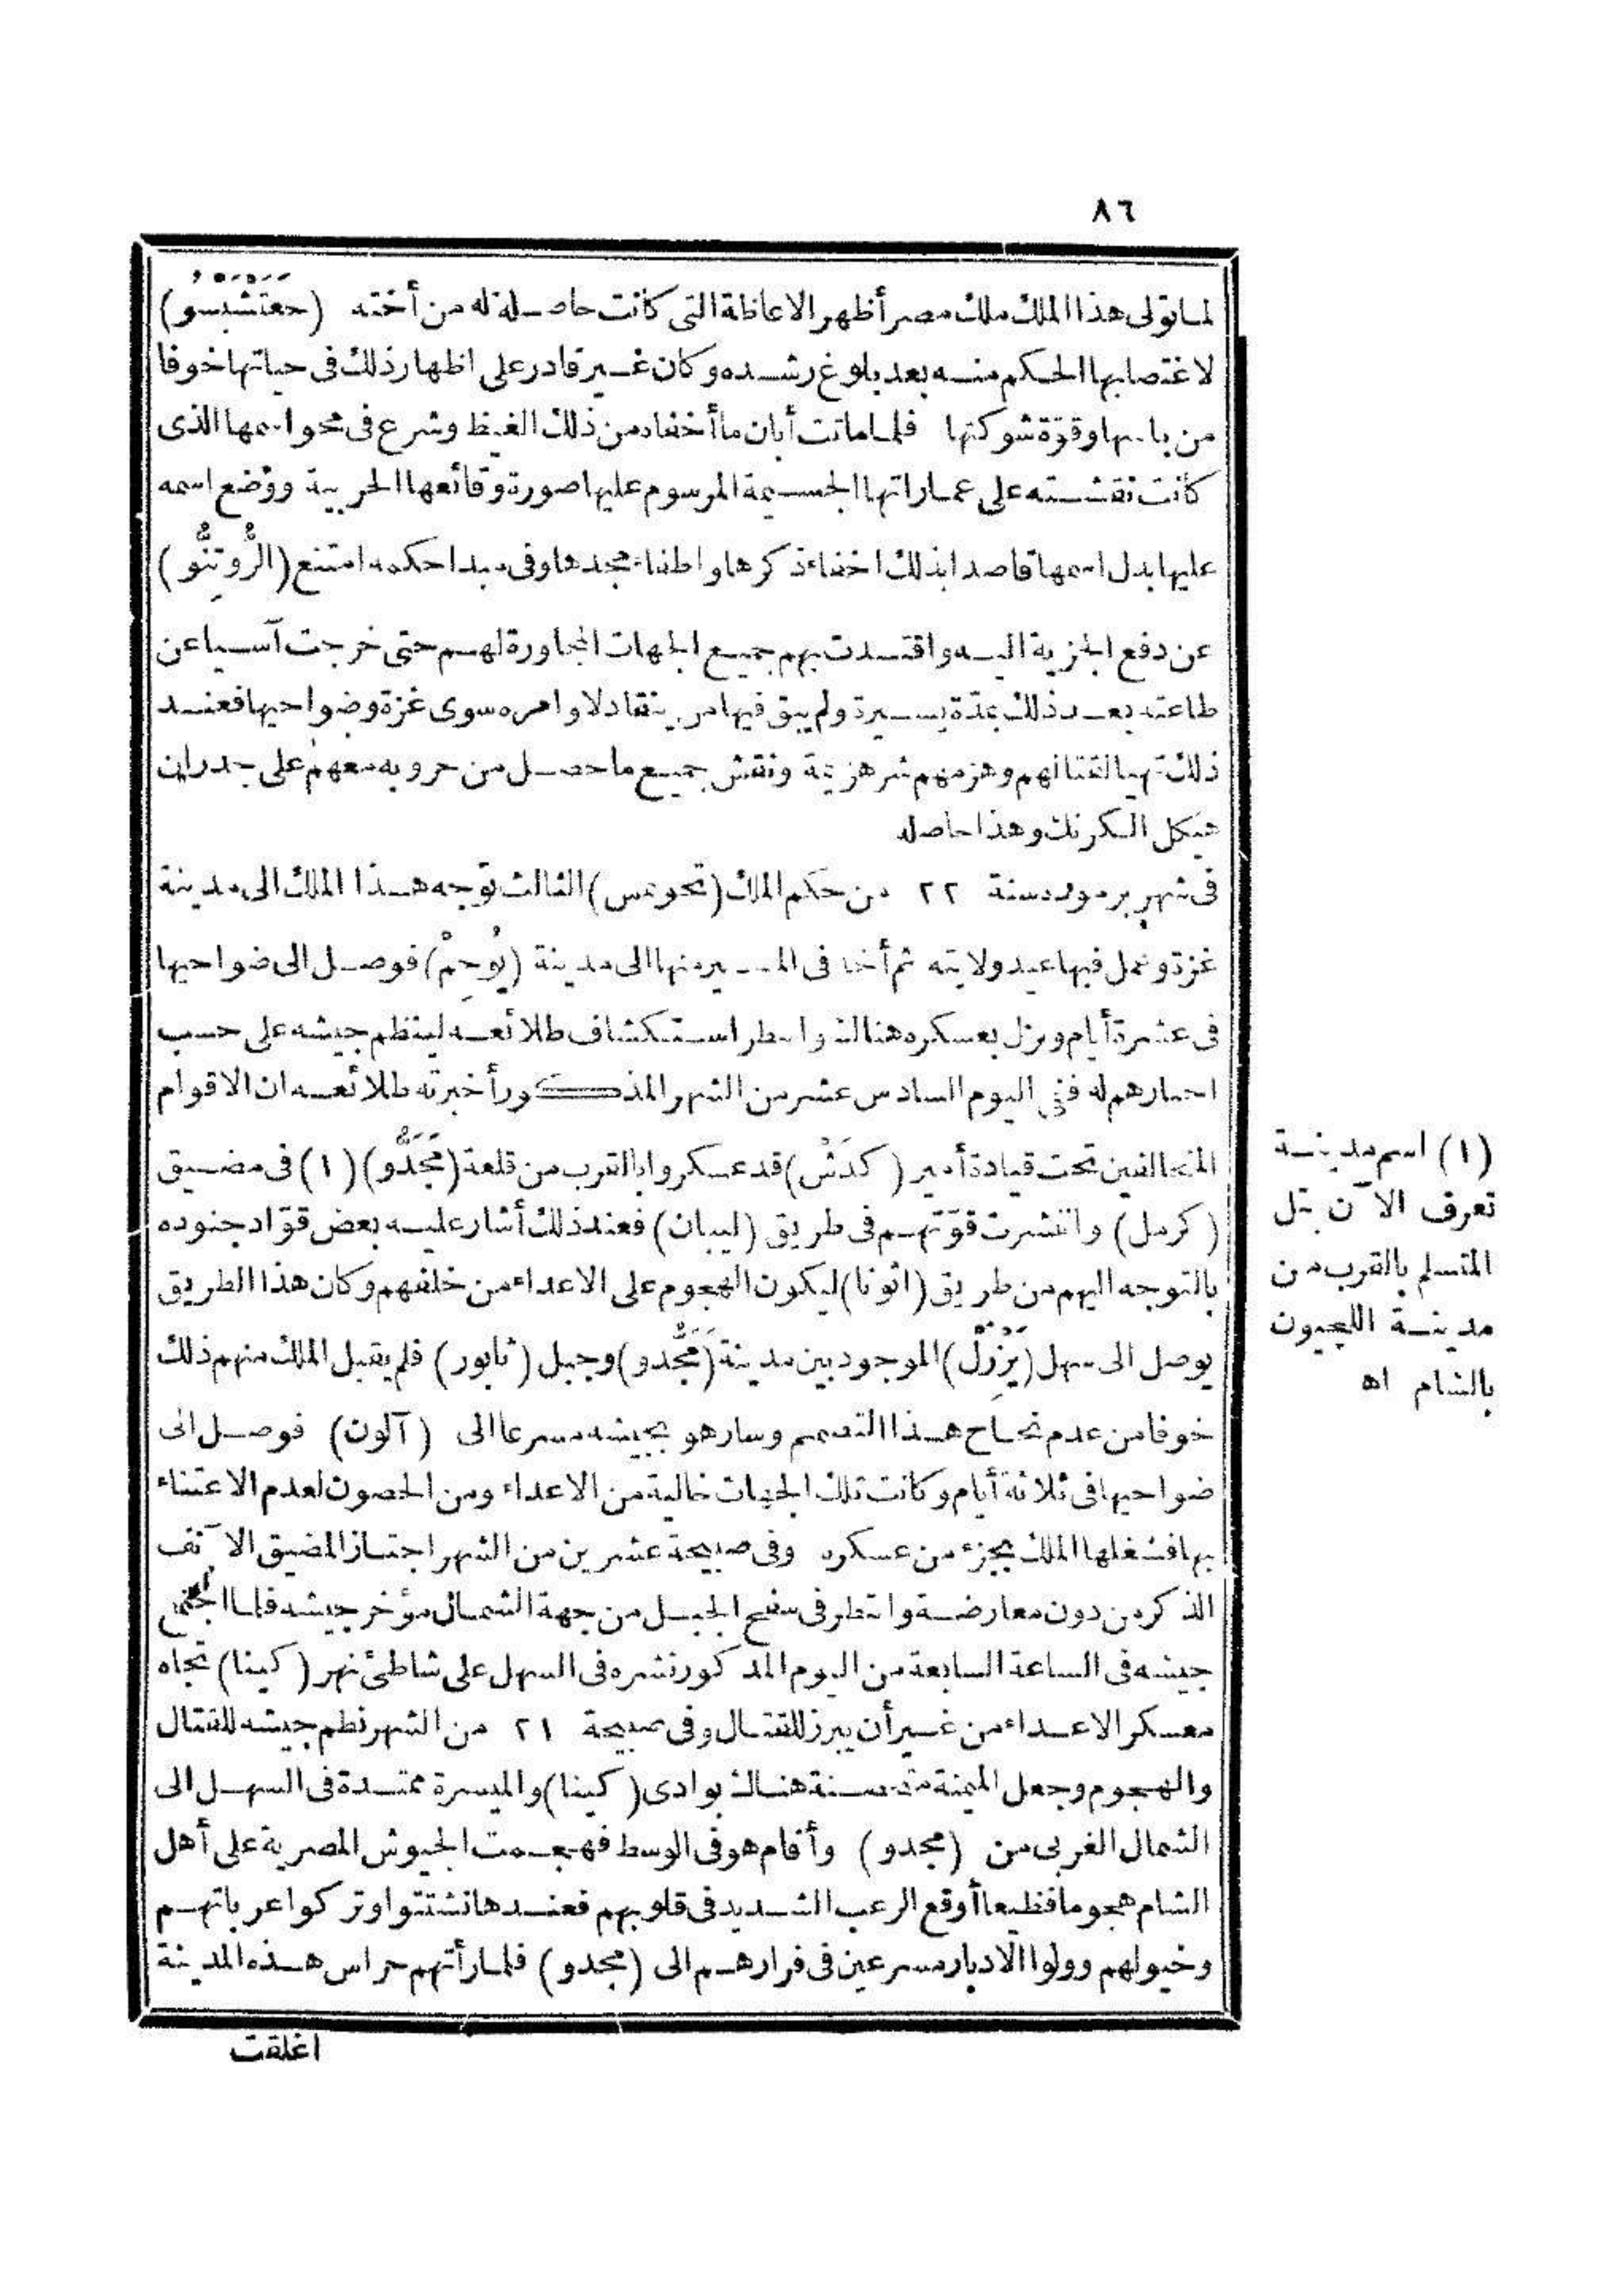 ٨٦
لما تولى هذا الملك ملك مصر أظهر الاغاظة التى كانت حاصلة له من أخته (حَعَتْشَبْسُو)
لاغتصابها الحكم منه بعد بلوغ رشده وكان غير قادر على اظهار ذلك فى حياتها خوفا
من باسها وقوّة شوكتها فلما ماتت أبان ما أخفاه من ذلك الغيظ وشرع فى محو اسمها الذى
كانت نقشته على عماراتها الجسيمة المرسوم عليها صورة وقائعها الحربية ووضع اسمه
عليها بدل اسمها قاصدا بذلك اخفاء ذكرها واطفاء مجدها وفى مبدا حكمه امتنع (الرُّوتِنُّو)
عن دفع الجزية اليه واقتدت بهم جميع الجهات المجاورة لهم حتى خرجت آسيا عن
طاعته بعد ذلك بمدّة يسيرة ولم يبق فيها من ينقاد لاوامره سوى غزة وضواحيها فعند
ذلك تهيا لقتالهم وهزمهم شر هزيمة ونقش جميع ما حصل من حروبه معهم على جدران
هيكل الكرنك وهذا حاصله
فى شهر برموده سنة ٢٢ من حكم الملك (تحوتمس) الثالث توجه هذا الملك الى مدينة
غزة وعمل فيها عيد ولايته ثم أخذ فى المسير منها الى مدينة (يُوحِمْ) فوصل الى ضواحيها
فى عشرة أيام ونزل بعسكره هنالك وانتظر استكشاف طلائعه لينظم جيشه على حسب
اخبارهم له ففى اليوم السادس عشر من الشهر المذكور أخبرته طلائعه ان الاقوام
المتحالفين تحت قيادة أمير (كدَشْ) قد عسكروا بالقرب من قلعة (مَجَدُّو) (١) فى مضيق
(كرمل) وانتشرت قوّتهم فى طريق (ليبان) فعند ذلك أشار عليه بعض قوّاد جنوده
بالتوجه اليهم من طريق (اثونا) ليكون الهجوم على الاعداء من خلفهم وكان هذا الطريق
يوصل الى سهل (يَزْرِلْ) الموجود بين مدينة (مَجَدُّو) وجبل (تابور) فلم يقبل الملك منهم ذلك
خوفا من عدم نجاح هذا التصميم وسار هو بجيشه مسرعا الى (آلون) فوصل الى
ضواحيها فى ثلاثة أيام وكانت تلك الجهات خالية من الاعداء ومن الحصون لعدم الاعتناء
بها فشغلها الملك بجزء من عسكره وفى صبيحة عشرين من الشهر اجتاز المضيق الآنف
الذكر من دون معارضة وانتظر فى سفح الجبل من جهة الشمال مؤخر جيشه فلما اجتمع
جيشه فى الساعة السابعة من اليوم المذكور نشره فى السهل على شاطئ نهر (كينا) تجاه
معسكر الاعداء من غير أن يبرز للقتال وفى صبيحة ٢١ من الشهر نظم جيشه للقتال
والهجوم وجعل الميمنة متحصنة هناك بوادى (كينا) والميسرة ممتدة فى السهل الى
الشمال الغربى من (مجدو) وأقام هو فى الوسط فهجمت الجيوش المصرية على أهل
الشام هجوما فظيعا أوقع الرعب الشديد فى قلوبهم فعندها تشتتوا وتركوا عرباتهم
وخيولهم وولوا الادبار مسرعين فى فرارهم الى (مجدو) فلما رأتهم حراس هذه المدينة
اغلقت
(١) اسم مدينة
تعرف الآن بتل
المتسلم بالقرب من
مدينة اللجيون
بالشام اه